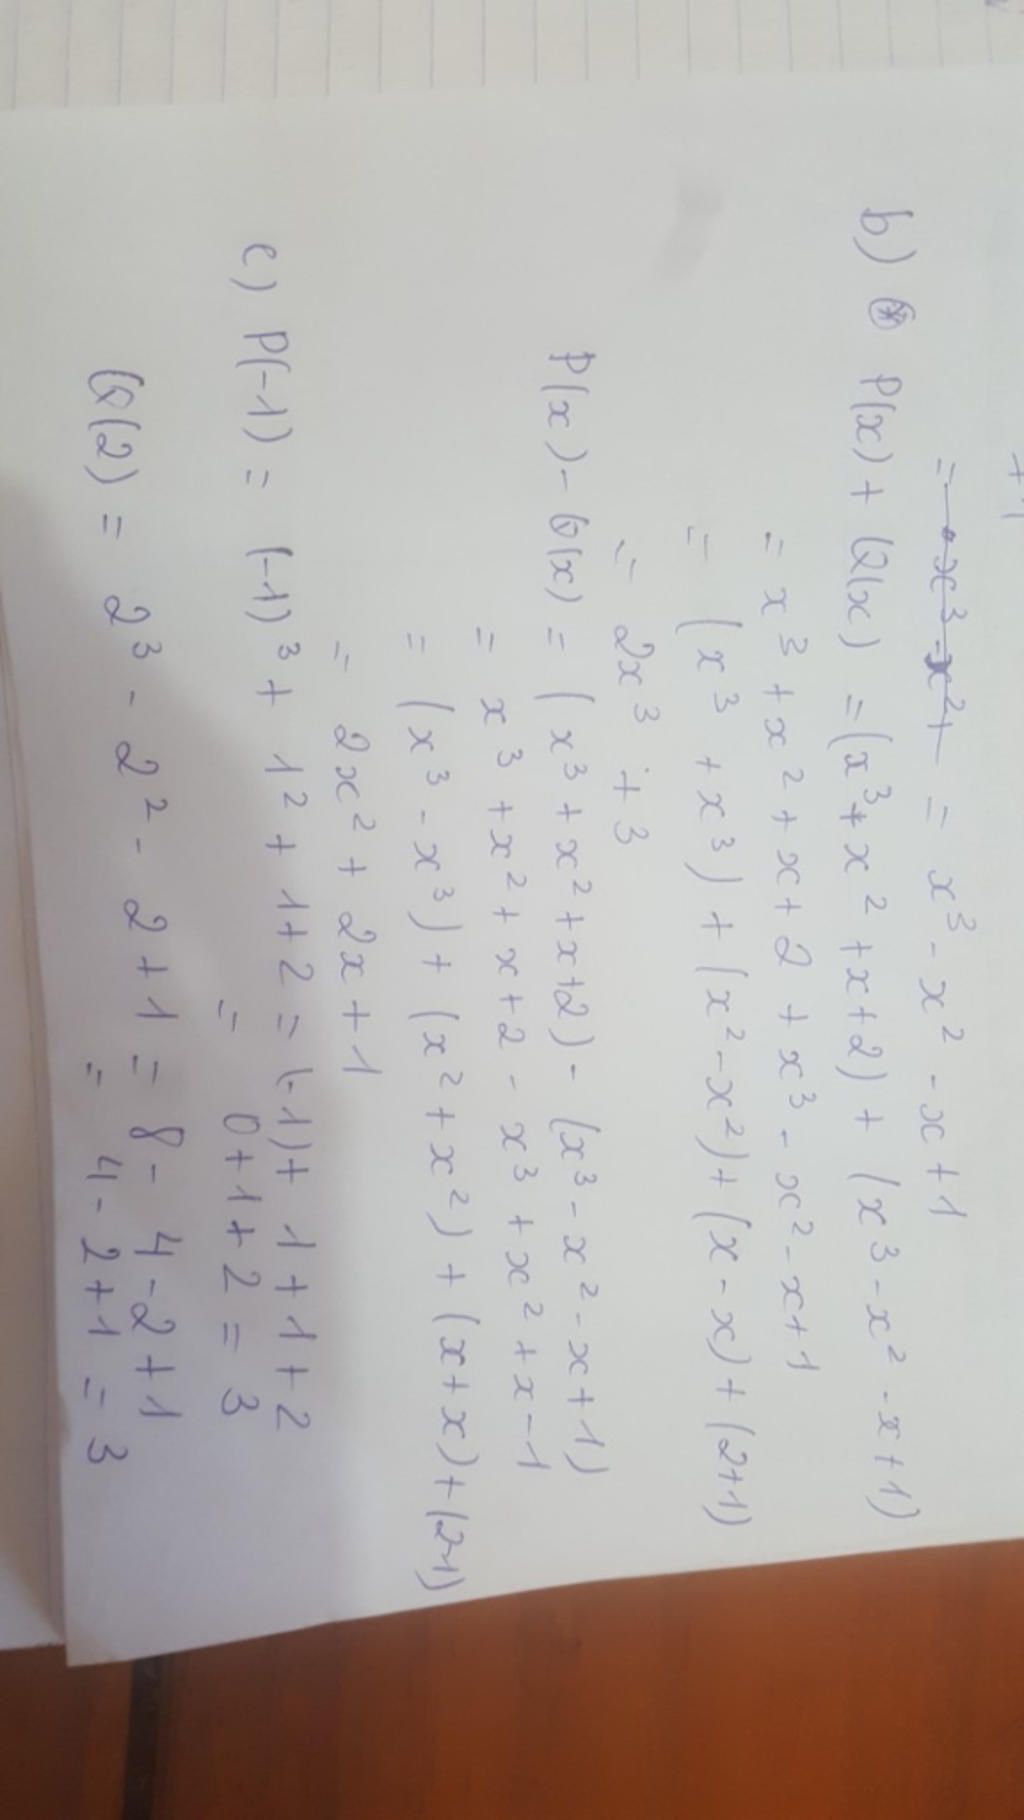 +1
= x³ - x² + = x³ - x² - x + 1
b) ⊛ P(x) + Q(x) = (x³ + x² + x + 2) + (x³ - x² - x + 1)
= x³ + x² + x + 2 + x³ - x² - x + 1
= (x³ + x³) + (x² - x²) + (x - x) + (2+1)
= 2x³ + 3
P(x) - Q(x) = (x³ + x² + x + 2) - (x³ - x² - x + 1)
= x³ + x² + x + 2 - x³ + x² + x - 1
= (x³ - x³) + (x² + x²) + (x + x) + (2-1)
= 2x² + 2x + 1
c) P(-1) = (-1)³ + 1² + 1 + 2 = (-1) + 1 + 1 + 2
= 0 + 1 + 2 = 3
Q(2) = 2³ - 2² - 2 + 1 = 8 - 4 - 2 + 1
= 4 - 2 + 1 = 3